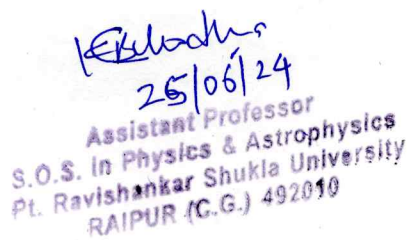 25/06/24
Assistant Professor
S.O.S. in Physics & Astrophysics
Pt. Ravishankar Shukla University
RAIPUR (C.G.) 492010